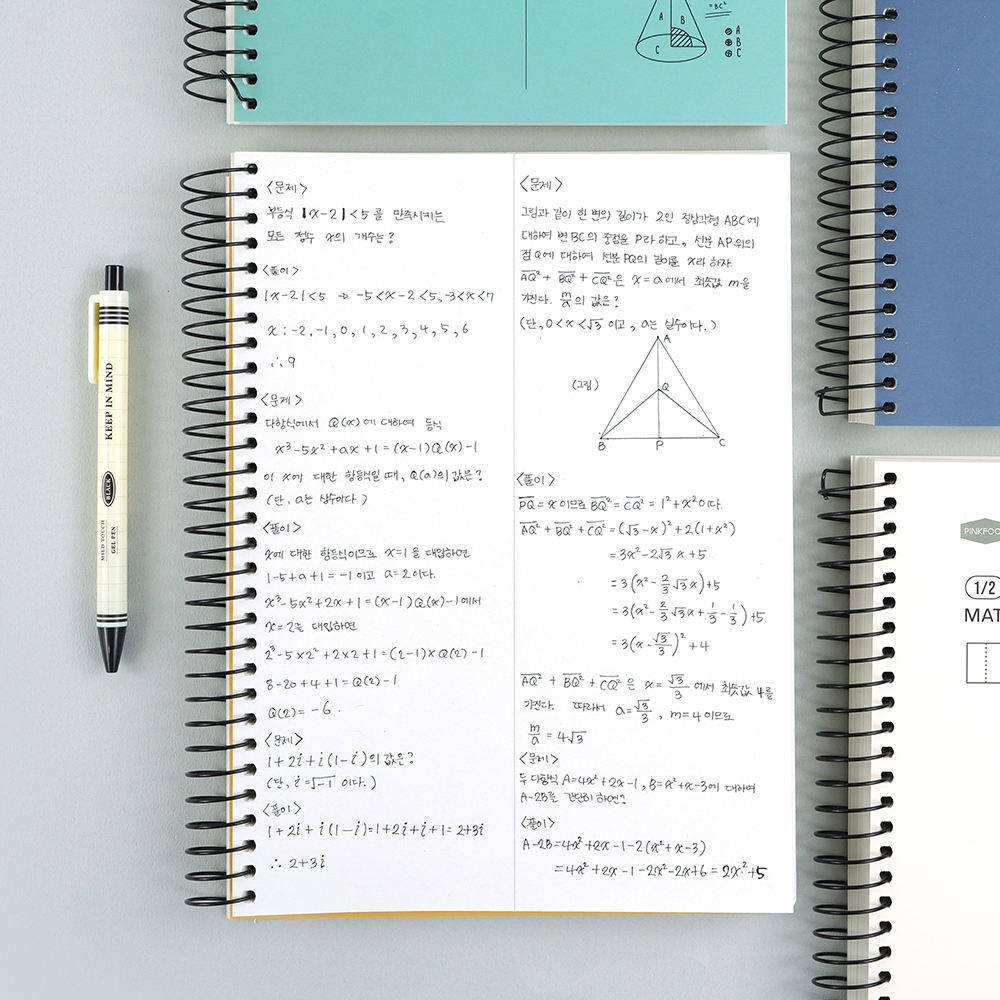 A
B
C
=BC²
A
B
C
KEEP IN MIND
BLACK
MILD TOUCH
GEL PEN
<문제>
부등식 |x-2|<5 를 만족시키는
모든 정수 x의 개수는?
<풀이>
|x-2|<5 → -5<x-2<5, -3<x<7
x : -2, -1, 0, 1, 2, 3, 4, 5, 6
∴ 9
<문제>
다항식에서 Q(x)에 대하여 등식
x³-5x²+ax+1=(x-1)Q(x)-1
이 x에 대한 항등식일 때, Q(a)의 값은?
(단, a는 상수이다)
<풀이>
x에 대한 항등식이므로 x=1을 대입하면
1-5+a+1=-1이고 a=2이다.
x³-5x²+2x+1=(x-1)Q(x)-1에서
x=2를 대입하면
2³-5×2²+2×2+1=(2-1)×Q(2)-1
8-20+4+1=Q(2)-1
Q(2)=-6.
<문제>
1+2i+i(1-i)의 값은?
(단, i=√-1 이다.)
<풀이>
1+2i+i(1-i)=1+2i+i+1=2+3i
∴ 2+3i
<문제>
그림과 같이 한 변의 길이가 2인 정삼각형 ABC에
대하여 변 BC의 중점을 P라 하고, 선분 AP위의
점 Q에 대하여 선분 PQ의 길이를 x라 하자.
AQ̅²+BQ̅²+CQ̅²은 x=a에서 최솟값 m을
가진다. m/a의 값은?
(단, 0<x<√3 이고, a는 실수이다.)
A
(그림)
Q
B P C
<풀이>
PQ̅=x이므로 BQ̅²=CQ̅²=1²+x²이다.
AQ̅²+BQ̅²+CQ̅²=(√3-x)²+2(1+x²)
=3x²-2√3x+5
=3(x²-2/3√3x)+5
=3(x²-2/3√3x+1/3-1/3)+5
=3(x-√3/3)²+4
AQ̅²+BQ̅²+CQ̅²은 x=√3/3에서 최솟값 4를
가진다. 따라서 a=√3/3, m=4이므로
m/a=4√3
<문제>
두 다항식 A=4x²+2x-1, B=x²+x-3에 대하여
A-2B를 간단히 하면?
<풀이>
A-2B=4x²+2x-1-2(x²+x-3)
=4x²+2x-1-2x²-2x+6=2x²+5
PINKFOO
1/2
MAT